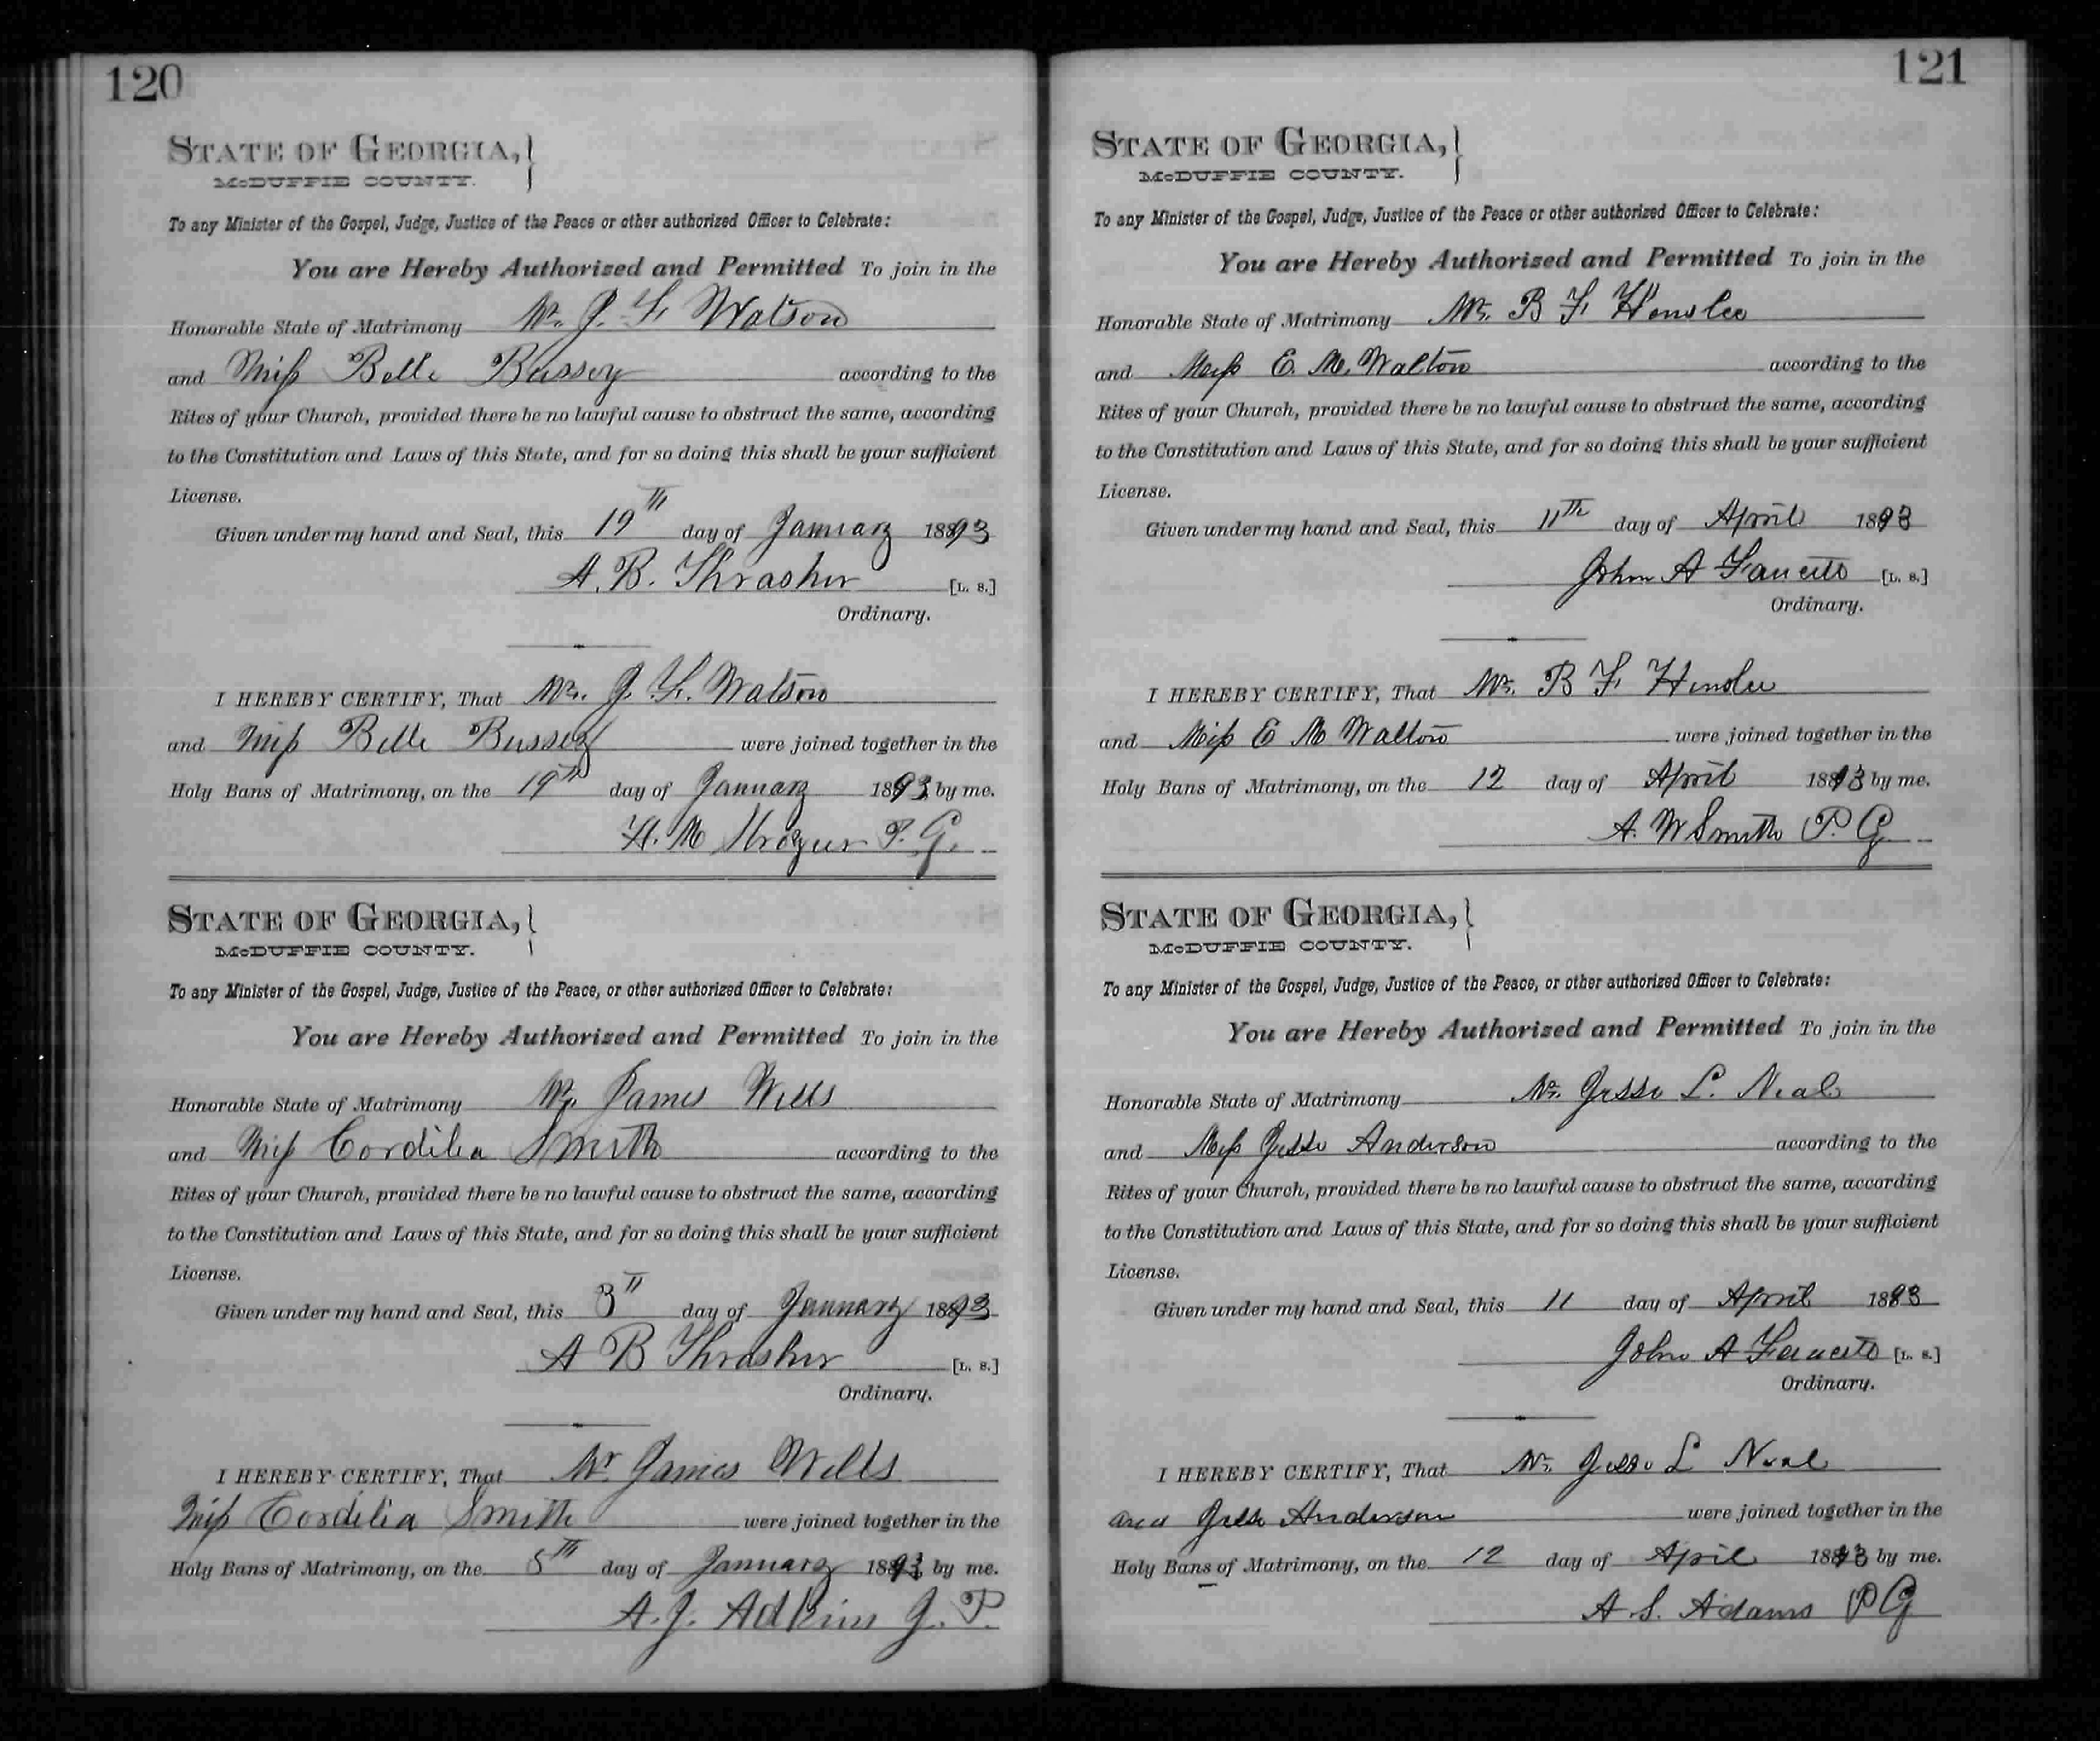 120
STATE OF GEORGIA,
McDUFFIE COUNTY.
To any Minister of the Gospel, Judge, Justice of the Peace or other authorized Officer to Celebrate:
You are Hereby Authorized and Permitted To join in the
Honorable State of Matrimony Mr. J. F. Watson
and Miss Belle Bussey according to the
Rites of your Church, provided there be no lawful cause to obstruct the same, according
to the Constitution and Laws of this State, and for so doing this shall be your sufficient
License.
Given under my hand and Seal, this 19th day of January 1893
A. B. Thrasher [L. S.]
Ordinary.
I HEREBY CERTIFY, That Mr. J. F. Watson
and Miss Belle Bussey were joined together in the
Holy Bans of Matrimony, on the 19th day of January 1893 by me.
P. G.
STATE OF GEORGIA,
McDUFFIE COUNTY.
To any Minister of the Gospel, Judge, Justice of the Peace, or other authorized Officer to Celebrate:
You are Hereby Authorized and Permitted To join in the
Honorable State of Matrimony Mr. James Wells
and Miss Cordelia Smith according to the
Rites of your Church, provided there be no lawful cause to obstruct the same, according
to the Constitution and Laws of this State, and for so doing this shall be your sufficient
License.
Given under my hand and Seal, this 3 day of January 1893
A B Thrasher [L. S.]
Ordinary.
I HEREBY CERTIFY, That Mr James Wells
Miss Cordilia Smith were joined together in the
Holy Bans of Matrimony, on the 5th day of January 1893 by me.
A. J. Adkins J. P.
121
STATE OF GEORGIA,
McDUFFIE COUNTY.
To any Minister of the Gospel, Judge, Justice of the Peace or other authorized Officer to Celebrate:
You are Hereby Authorized and Permitted To join in the
Honorable State of Matrimony Mr. B F Henslee
and Miss E. M. Walton according to the
Rites of your Church, provided there be no lawful cause to obstruct the same, according
to the Constitution and Laws of this State, and for so doing this shall be your sufficient
License.
Given under my hand and Seal, this 11th day of April 1893
John A [L. S.]
Ordinary.
I HEREBY CERTIFY, That Mr. B F Henslee
and Miss E M Walton were joined together in the
Holy Bans of Matrimony, on the 12 day of April 1893 by me.
A. W Smith P. G
STATE OF GEORGIA,
McDUFFIE COUNTY.
To any Minister of the Gospel, Judge, Justice of the Peace, or other authorized Officer to Celebrate:
You are Hereby Authorized and Permitted To join in the
Honorable State of Matrimony Mr. Jesse L. Neal
and Miss Jesse Anderson according to the
Rites of your Church, provided there be no lawful cause to obstruct the same, according
to the Constitution and Laws of this State, and for so doing this shall be your sufficient
License.
Given under my hand and Seal, this 11 day of April 1893
John A [L. S.]
Ordinary.
I HEREBY CERTIFY, That Mr. Jesse L Neal
and Jesse Anderson were joined together in the
Holy Bans of Matrimony, on the 12 day of April 1893 by me.
A. S. Adams P G